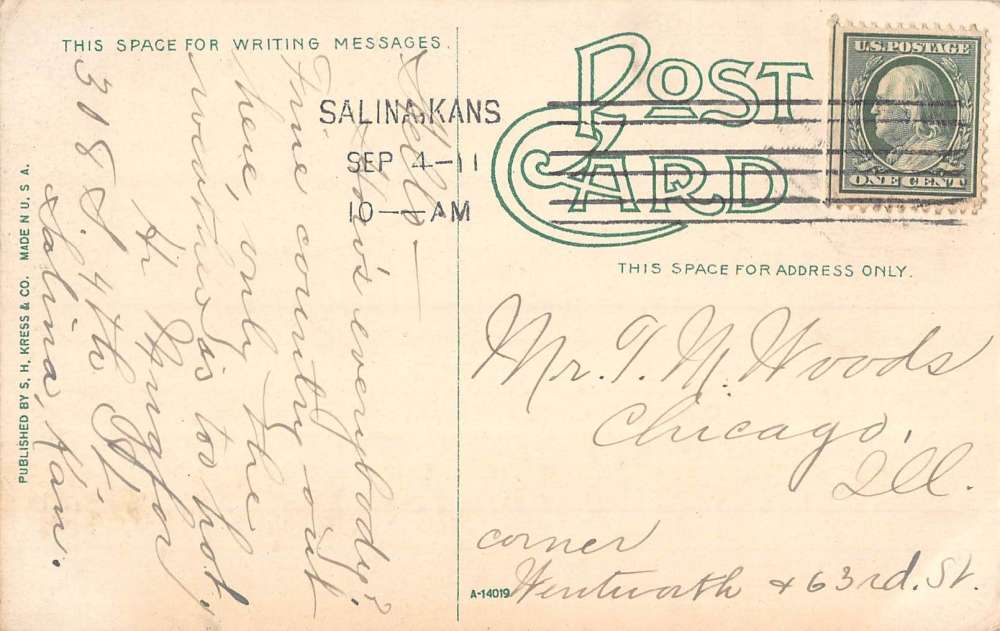 THIS SPACE FOR WRITING MESSAGES.
Hello—
How's everybody?
Fine country out
here, only the
weather's too hot.
318 S. 4th St.
Salina, Kan.
PUBLISHED BY S. H. KRESS & CO. MADE N U. S. A.
SALINA, KANS
SEP 4-11
10—AM
POST
CARD
U.S. POSTAGE
ONE CENT
THIS SPACE FOR ADDRESS ONLY.
Mr. T. M. Woods
Chicago,
Ill.
corner
Wentworth & 63rd. St.
A-14019